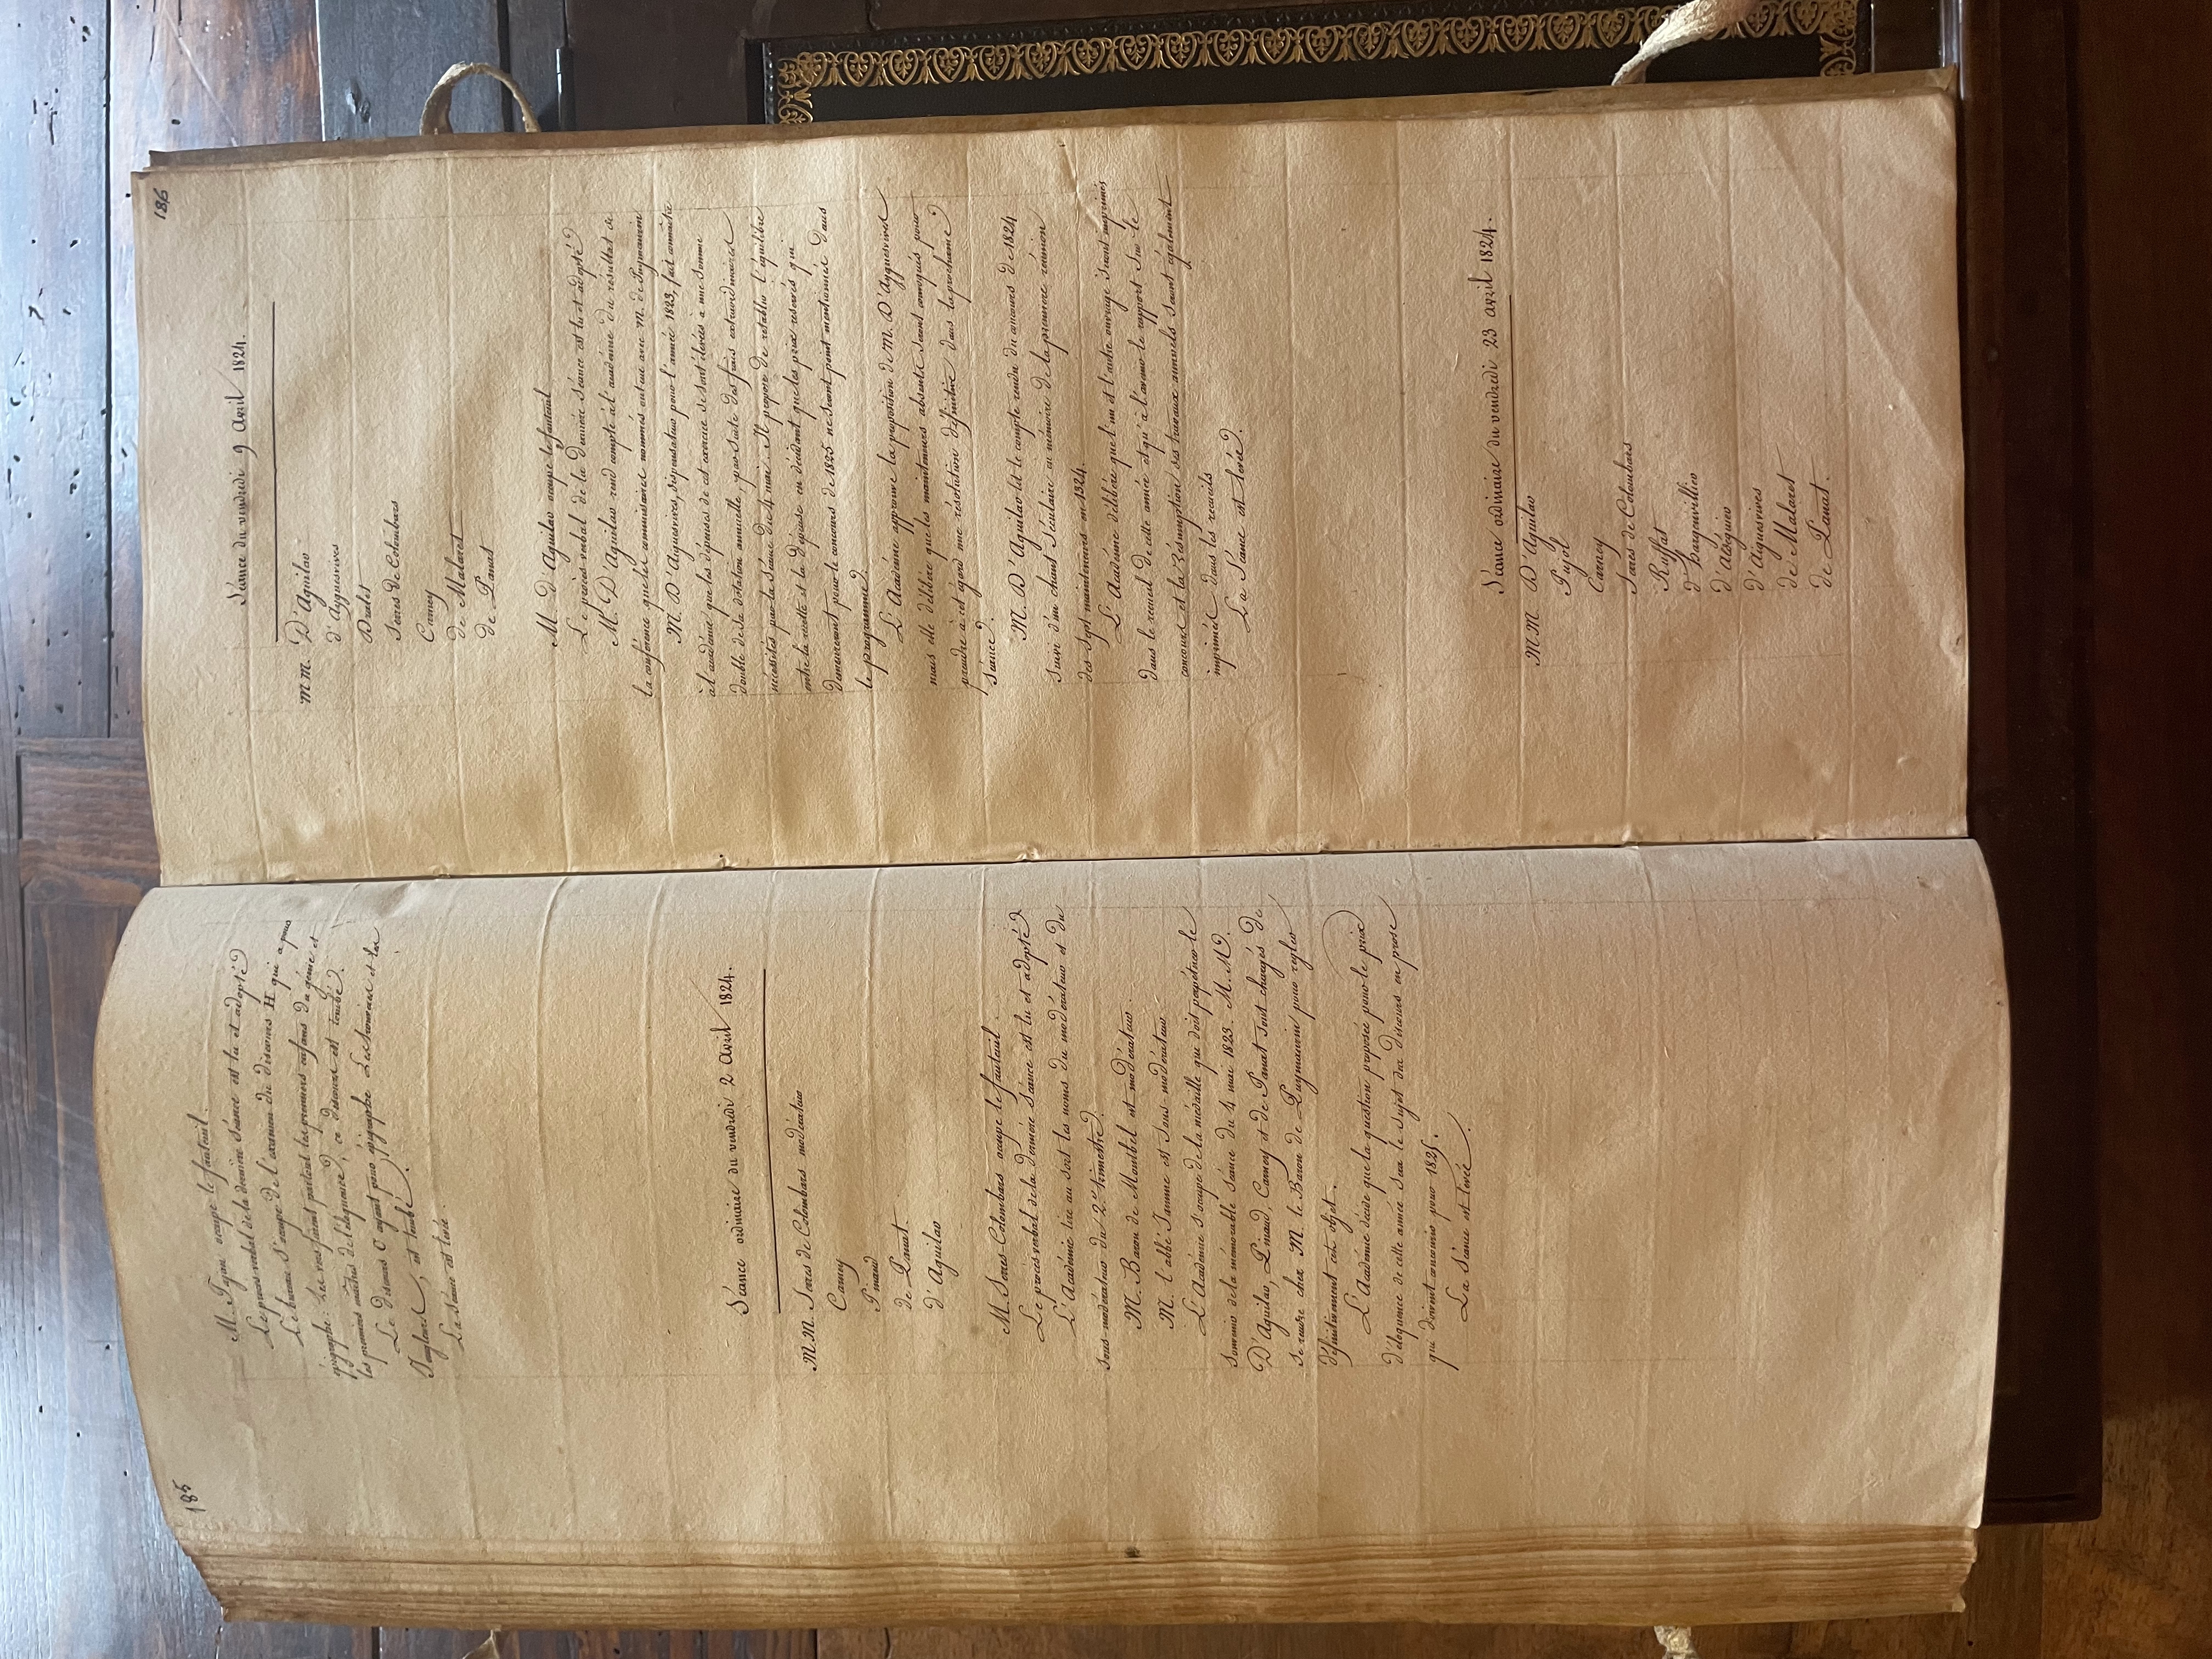 185
M. Tajan occupe le fauteuil.
Le procès verbal de la dernière séance est lu et adopté
Le bureau s'occupe de l'examen du discours H qui a pour
épigraphe: Les vers furent partout les premiers enfans du génie et
les premiers maîtres de l'éloquence, ce discours est tombé.
Le discours C ayant pour épigraphe Lachrimae et
Singleurs, est tombé.
La séance est levée.
Séance ordinaire du vendredi 2 avril 1824.
M.M. Serres de Colombars modérateur
Carney
Pinaud
de Panat
d'Aguilar
M. Serres Colombars occupe le fauteuil.
Le procès verbal de la dernière séance est lu et adopté
L'Académie tire au sort les noms du modérateur et du
sous modérateur du 2e trimestre.
M. Baron de Montbel est modérateur.
M. l'abbé Jamme est sous-modérateur.
L'Académie s'occupe de la médaille qui doit perpétuer le
souvenir de la mémorable séance du 4 mai 1823. M.M.
D'Aguilar, Pinaud, Carney et de Panat sont chargés de
se rendre chez M. le Baron de Puymaurin pour régler
définitivement cet objet.
L'Académie décide que la question proposée pour le prix
d'éloquence de cette année sera le sujet des discours en prose
qui doivent concourir pour 1825.
La séance est levée.
186
Séance du vendredi 9 avril 1824.
M M. D'Aguilar
d'Ayguesvives
Dralet
Serres de Colombars
Carney
de Malaret
de Panat
M. D'Aguilar occupe le fauteuil
Le procès verbal de la dernière séance est lu et adopté
M. D'Aguilar rend compte à l'académie du résultat de
la conférence que les commissaires nommés ont eue avec M. de Puymaurin
M. D'Aiguesvives, dispensateur pour l'année 1823, fait connaître
à l'académie que les dépenses de cet exercice se sont élevées à une somme
double de sa dotation annuelle, par suite des frais extraordinaires
nécessités par la séance du 4 mai. Il propose de rétablir l'équilibre
entre la recette et la dépense en décidant que les prix réservés qui
demeureront pour le concours de 1825 ne seront point mentionnés dans
le programme.
L'Académie approuve la proposition de M. D'Ayguesvives
mais elle délibère que les mainteneurs absents seront convoqués pour
prendre à cet égard une résolution définitive dans la prochaine
séance.
M. D'Aguilar lit le compte rendu du concours de 1824
suivi d'un chant séculaire en mémoire de la première réunion
des sept mainteneurs en 1324.
L'Académie délibère que l'un et l'autre ouvrage seront imprimés
dans le recueil de cette année et qu'à l'avenir le rapport sur le
concours et la résumption des travaux annuels seront également
imprimés dans les recueils
La séance est levée.
Séance ordinaire du vendredi 23 avril 1824.
M M. D'Aguilar
Pujol
Carney
Serres de Colombars
Ruffat
d'Hargenvillier
d'Aldéguier
d'Aiguesvives
de Malaret
de Panat.